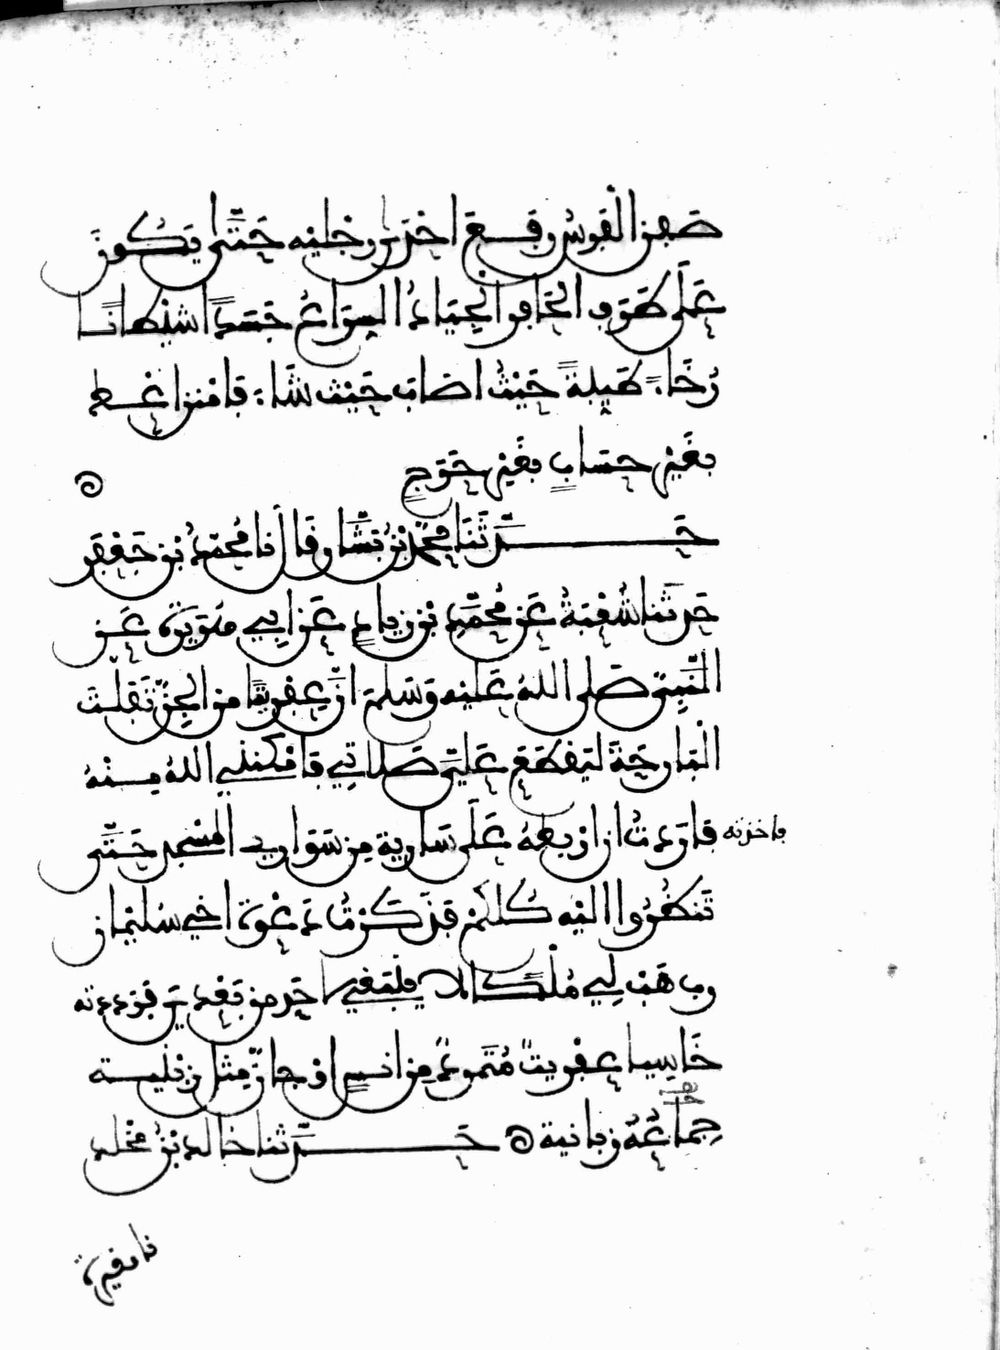 صَفَنَ الْفَرَسُ رَفَعَ احْدَى رِجْلَيْهِ حَتَّى يَكُونَ
عَلَى طَرَفِ الحَافِرِ الْجِيَادُ السِّرَاعُ جَسَدًا شَيْطَانًا
رُخَاءً طَيِّبَةً حَيْثُ اصَابَ حَيْثُ شَاءَ فَامْنُنْ اعْطِ
بغَيْرِ حِسَابٍ بغَيْرِ حَرَجٍ
حَدَّثَنَا مُحَمَّدُ بْنُ بَشَّارٍ قَالَ نا مُحَمَّدُ بْنُ جَعْفَرٍ
حَدَّثَنا شُعْبَةُ عَنْ مُحَمَّدِ بْنِ زِيادٍ عَنْ ابِي هُرَيْرَةَ عَنِ
النَّبِيِّ صَلى اللهُ عَلَيْهِ وَسَلمَ انَّ عِفْرِيتًا مِنَ الجِنِّ تَفَلَّتَ
الْبَارِحَةَ لِيَقْطَعَ عَلَيَّ صَلاتِي فَأَمْكَنَنِي اللهُ مِنْهُ
فأخذته فَارَدْتُ ان ارْبِطَهُ عَلَى سَارِيةٍ مِنْ سَوَارِي الْمَسْجِدِ حَتَّى
تَنْظُرُوا الَيْهِ كُلُّكُمْ فَذَكَرْتُ دَعْوَةَ اخِي سُلَيْمَانَ
رب هَبْ لِي مُلْكًا لا يَنْبَغِي لأحَدٍ مِنْ بَعْدِي فَرَدَدته
خَاسِيا عِفْرِيتٌ مُتَمَرِّدٌ مِنِ انْسٍ اوْ جَانٍّ مِثْلُ زِبْنِيَةٍ
جَمَاعَتُهُ زبانية حَدَّثنا خالد بْنُ مخْلد
نا مغيرة